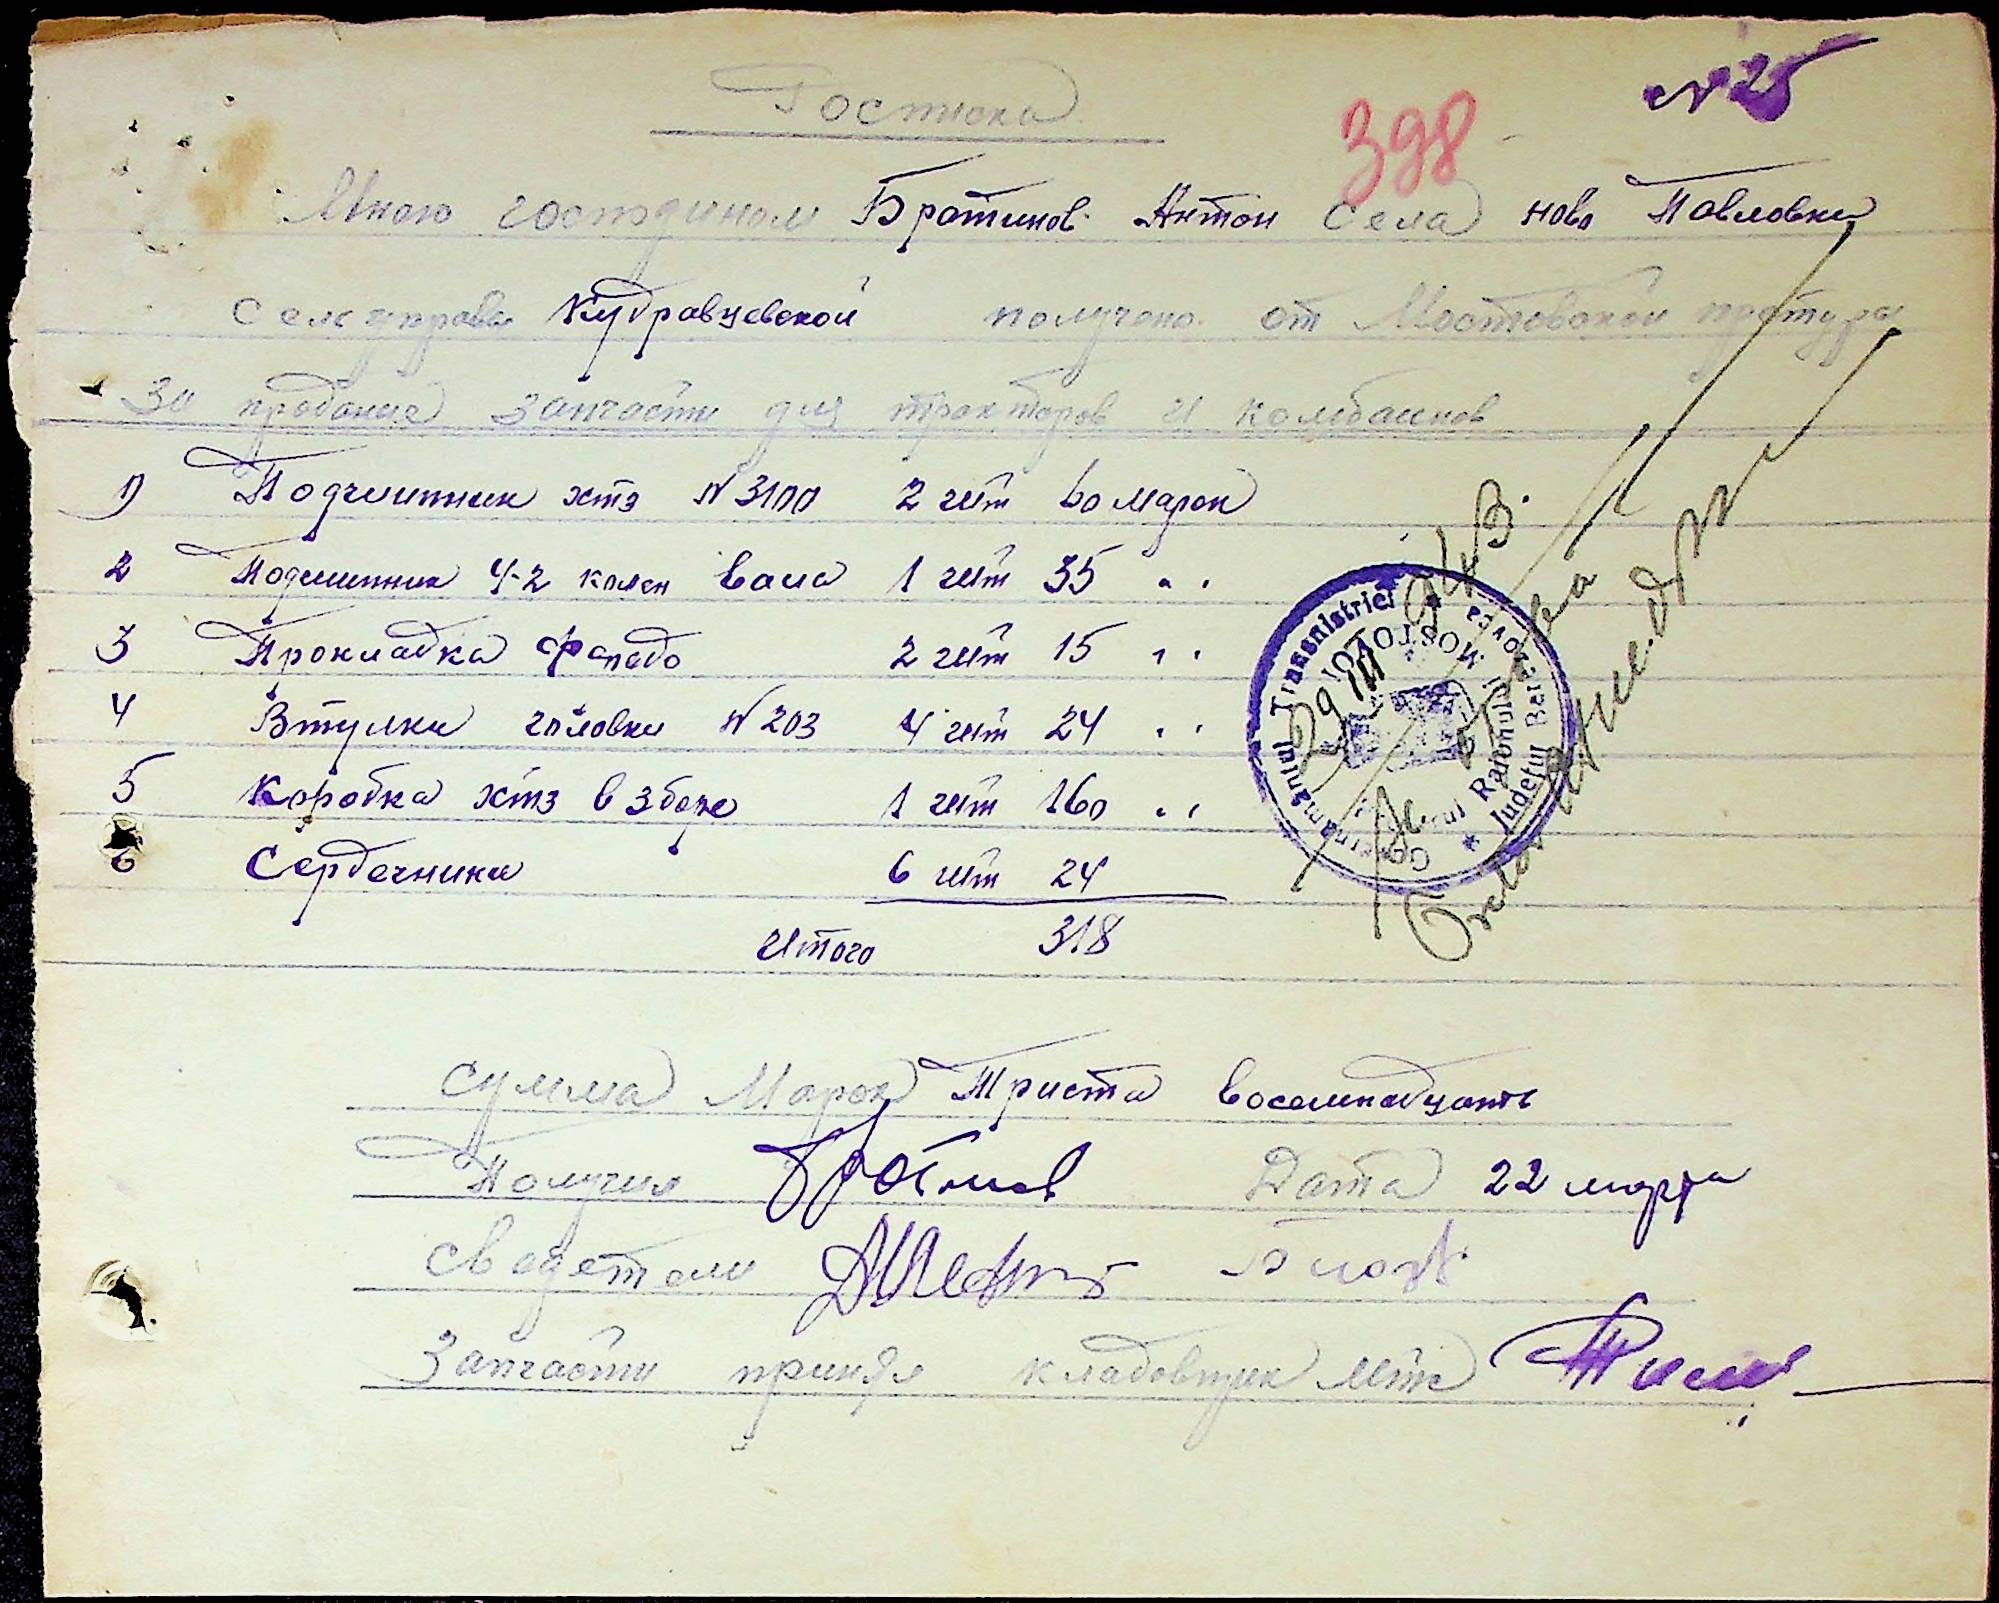 № 25
Ростиска
398
Мною господином Братинов Антон села ново Павловки
сельуправы Кудрявцевской получено от Мостовской претуры
За проданые запчасти для тракторов и комбаинов
1) Подчипник хтз N 3100 2 шт 60 марок
2 Подшипник Ч-2 колен вала 1 шт 35 " "
3 Прокладка 2 шт 15 " "
4 Втулки головки N 203 4 шт 24 " "
5 Коробка хтз в зборе 1 шт 160 " "
6 Сердечники 6 шт 24
Итого 318
Guvernamântul Transnistriei
Judeţul Berezovca
Raionului
MOSTOVOI
29 III
сумма Марок Триста восемнадцать
Получил Братинов Дата 22 марта
Сведетели
Запчасти принял кладовщик мтс